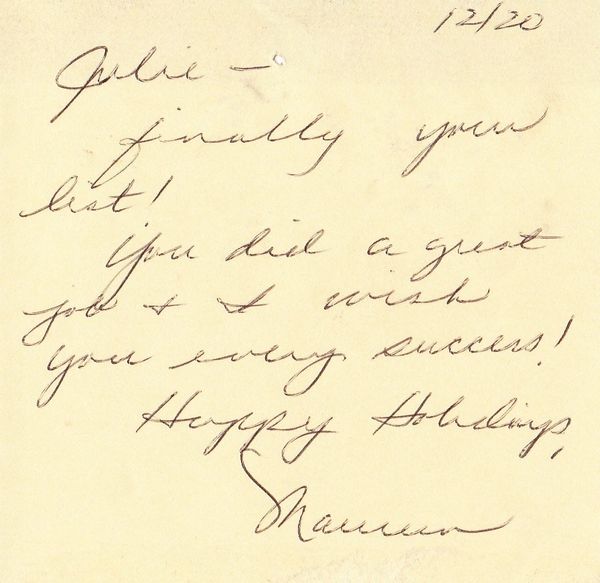 12/20
Julie –
finally your
list!
You did a great
job & I wish
you every success!
Happy Holidays,